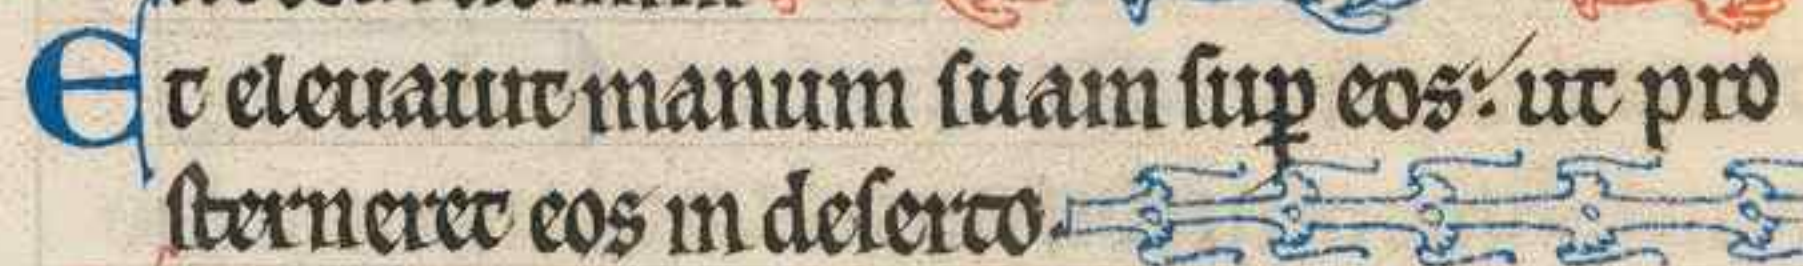 Et eleuauit manum suam sup̱ eos: ut pro
sterneret eos in deserto.